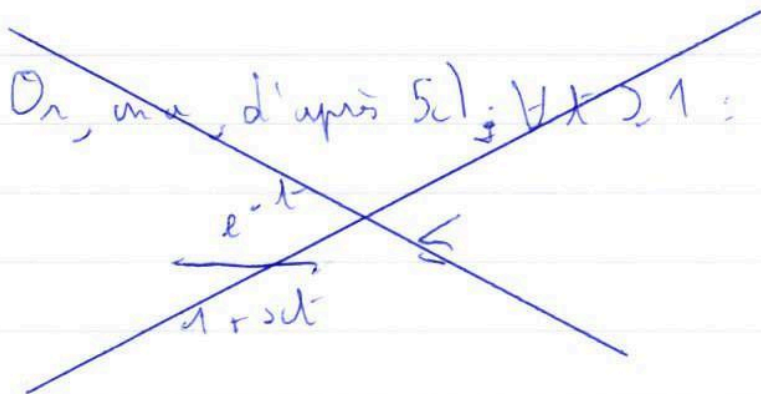 Or, on a, d'après 5c) : ∀t ≥ 1 :
e^{-t} / (1 + xt) ≤